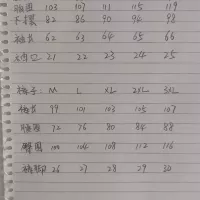 腰围 103 107 111 115 119
下摆 82 86 90 94 98
袖长 62 63 64 65 66
袖口 21 22 23 24 25
裤子: M L XL 2XL 3XL
裤长 99 101 103 105 107
腰围 72 76 80 84 88
臀围 100 104 108 112 116
裤脚 26 27 28 29 30